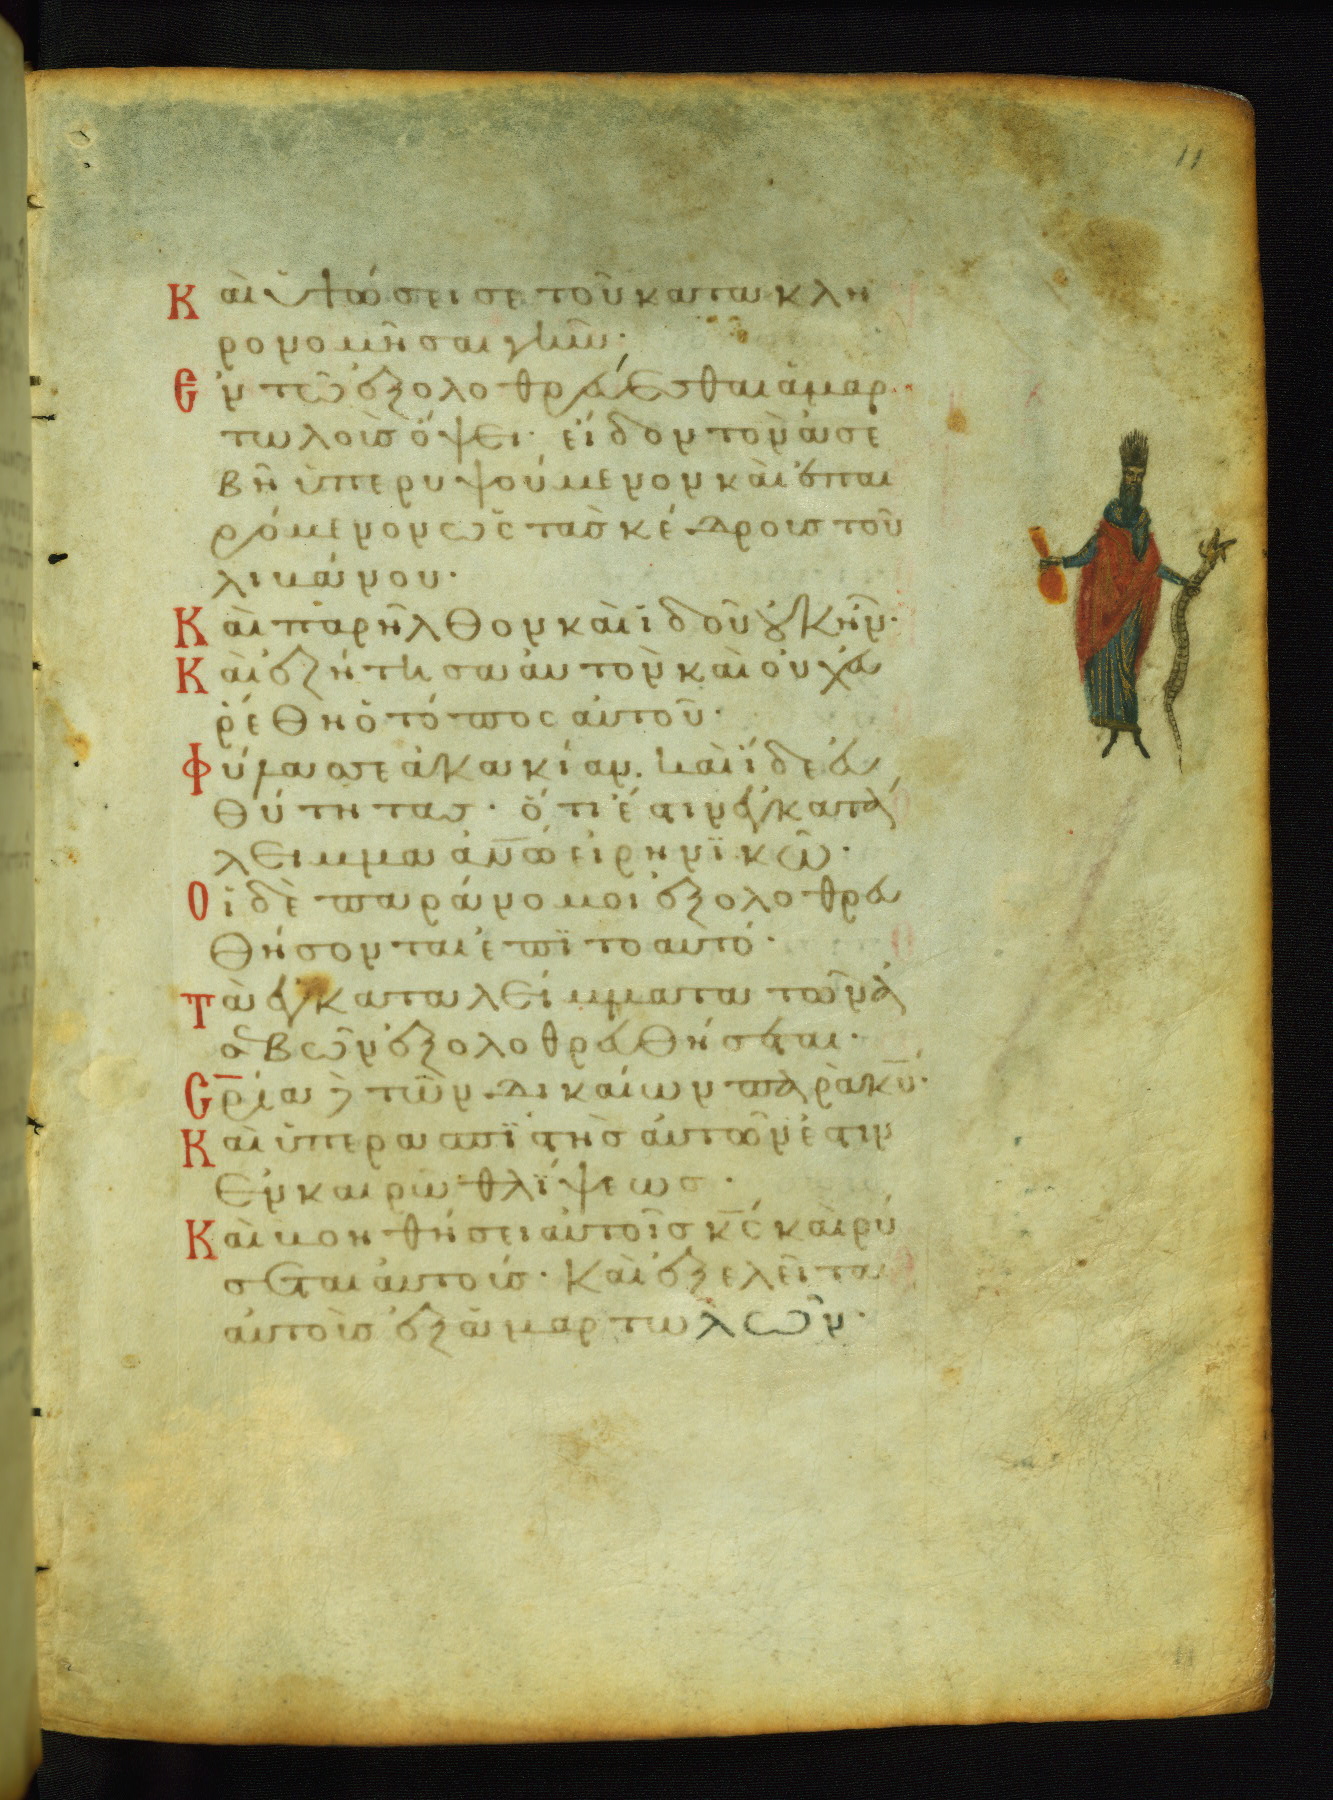 11
Καὶ ὑψώσει σε τοῦ κατακλη
ρονομῆσαι γῆν·
Ἐν τῶ ἐξολοθρεύεσθαι ἁμαρ
τωλοὺσ ὄψει· εἶδον τὸν ἀσε
βῆ ὑπερυψούμενον καὶ ἐπαι
ρόμενον ὡς τὰσ κέδρουσ τοῦ
λιβάνου·
Καὶ παρῆλθον καὶ ἰδοῦ οὐκ ἦν·
Καὶ ἐζήτησα αὐτὸν καὶ οὐχ εὑ
ρέθη ὁ τόπος αὐτοῦ·
Φύλασσε ἀκακίαν. καὶ ἴδε εὐ
θύτητας· ὅτι ἐστιν ἐγκατά
λειμμα ἀν̅ω εἰρηνϊκῶ·
Οἱ δὲ παράνομοι ἐξολοθρευ
θήσονται ἐπϊτοαυτό·
Τὰ ἐγκαταλείμματα τῶν ἀ
σεβῶν ἐξολοθρευθήσεται·
Σ̅ρ̅ία δὲ τῶν δικαίων παρὰ κ̅υ̅·
Καὶ ὑπερασπϊστὴσ αὐτῶν ἐστιν
ἐν καιρῶ θλίψεωσ·
Καὶ βοηθήσει αὐτοῖσ κ̅ς̅ καὶ ρύ
σεται αὐτούσ· Καὶ ἐξελεῖται
αὐτοὺσ ἐξ ἁμαρτωλῶν·